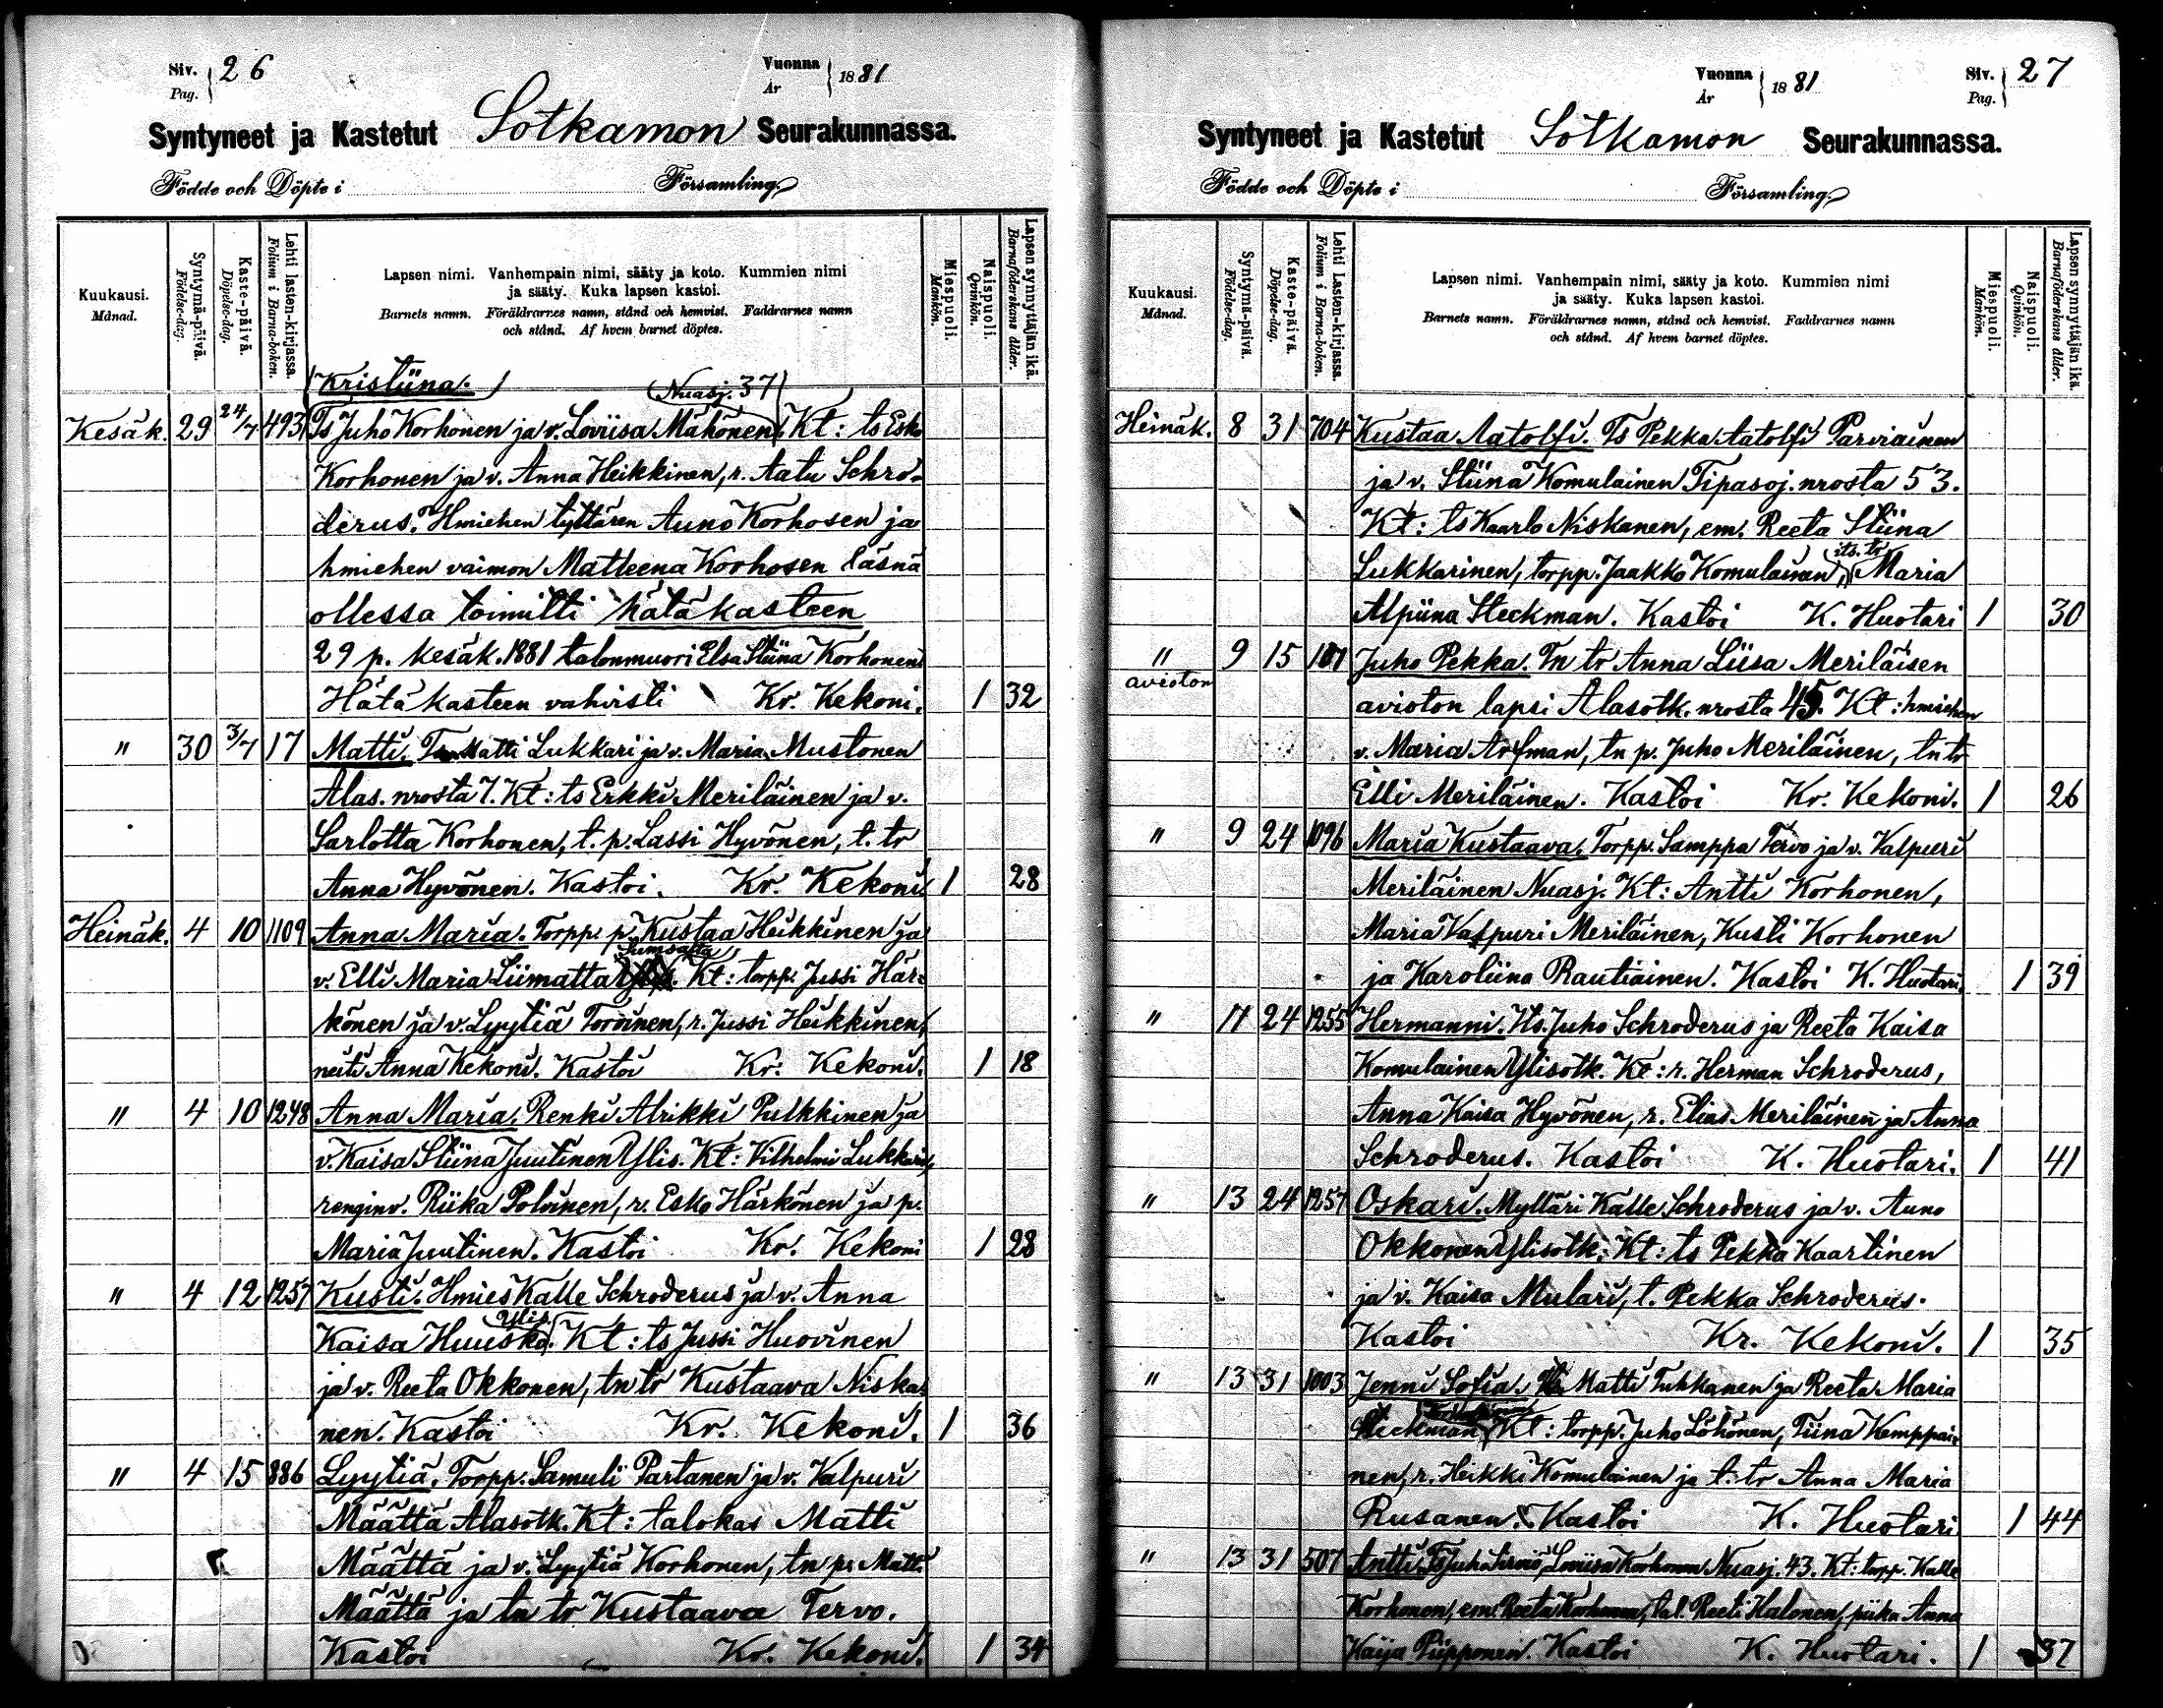 Siv. 26
Pag.
Vuonna 1881
År
Syntyneet ja Kastetut Sotkamon Seurakunnassa.
Födde och Döpte i Församling.
Kuukausi.
Månad.
Syntymä-päivä.
Födelse-dag.
Kaste-päivä.
Döpelse-dag.
Lehti lasten-kirjassa.
Folium i Barna-boken.
Lapsen nimi. Vanhempain nimi, sääty ja koto. Kummien nimi
ja sääty. Kuka lapsen kastoi.
Barnets namn. Föräldrarnes namn, stånd och hemvist. Faddrarnes namn
och stånd. Af hvem barnet döptes.
Miespuoli.
Mankön.
Naispuoli.
Qvinkön.
Lapsen synnyttäjän ikä.
Barnaföderskans ålder.
Kristiina. Nuasj. 37
Kesäk. 29 24/7 493 Ts Juho Korhonen ja v. Loviisa Mähönen Kt: ts Esko
Korhonen ja v. Anna Heikkinen, r. Aatu Schro-
derus. Hmiehen tyttären Auno Korhosen ja
hmiehen vaimon Matleena Korhosen läsnä
ollessa toimitti hätäkasteen
29 p. kesäk. 1881 talonmuori Elsa Stiina Korhonen.
Hätäkasteen vahvisti Kr. Kekoni. 1 32
" 30 3/7 17 Matti. Matti Lukkari ja v. Maria Mustonen
Alas. nrosta 7. Kt: ts Erkki Meriläinen ja v.
Sarlotta Korhonen, t. p. Lassi Hyvönen, t. tr
Anna Hyvönen. Kastoi. Kr. Kekoni 1 28
Heinäk. 4 10 1109 Anna Maria. Torpp. p. Kustaa Heikkinen ja
v. Elli Maria Liimatta Kt: torpp. Jussi Här-
könen ja v. Lyytiä Torvinen, r. Jussi Heikkinen,
neiti Anna Kekoni. Kastoi Kr. Kekoni. 1 18
" 4 10 1248 Anna Maria. Renki Abrikki Pulkkinen ja
v. Kaisa Stiina Juutinen Ylis. Kt: Vilhelmi Lukkari,
renginv. Riika Polvinen, r. Esko Härkönen ja p.
Maria Juutinen. Kastoi Kr. Kekoni 1 28
" 4 12 1257 Kusti. Hmies Kalle Schroderus ja v. Anna
Ylis.
Kaisa Huusko. Kt: ts Jussi Huovinen
ja v. Reeta Okkonen, tn tr Kustaava Niska-
nen. Kastoi Kr. Kekoni. 1 36
" 4 15 886 Lyytiä. Torpp. Samuli Partanen ja v. Valpuri
Määttä Alasotk. Kt: talokas Matti
Määttä ja v. Lyytiä Korhonen, tn p. Matti
Määttä ja tn tr Kustaava Tervo.
Kastoi Kr. Kekoni. 1 34
Vuonna 1881
År
Siv. 27
Pag.
Syntyneet ja Kastetut Sotkamon Seurakunnassa.
Födde och Döpte i Församling.
Kuukausi.
Månad.
Syntymä-päivä.
Födelse-dag.
Kaste-päivä.
Döpelse-dag.
Lehti Lasten-kirjassa.
Folium i Barna-boken.
Lapsen nimi. Vanhempain nimi, sääty ja koto. Kummien nimi
ja sääty. Kuka lapsen kastoi.
Barnets namn. Föräldrarnes namn, stånd och hemvist. Faddrarnes namn
och stånd. Af hvem barnet döptes.
Miespuoli.
Mankön.
Naispuoli.
Qvinkön.
Lapsen synnyttäjän ikä.
Barnaföderskans ålder.
Heinäk. 8 31 704 Kustaa Aatolfi. Ts Pekka Aatolfi Parviainen
ja v. Stiina Komulainen Tipasoj. nrosta 53.
Kt: ts Kaarlo Niskanen, em. Reeta Stiina
its. tr
Lukkarinen, torpp. Jaakko Komulainen, Maria
Alpiina Steckman. Kastoi K. Huotari 1 30
" 9 15 101 Juho Pekka. Tn tr Anna Liisa Meriläisen
avioton
avioton lapsi Alasotk. nrosta 45. Kt: hmiehen
v. Maria Arfman, tn p. Juho Meriläinen, tn tr
Elli Meriläinen. Kastoi Kr. Kekoni. 1 26
" 9 24 1096 Maria Kustaava. Torpp. Samppa Tervo ja v. Valpuri
Meriläinen Nuasj. Kt: Antti Korhonen,
Maria Valpuri Meriläinen, Kusti Korhonen
ja Karoliina Rautiainen. Kastoi K. Huotari. 1 39
" 11 24 1255 Hermanni. Its. Juho Schroderus ja Reeta Kaisa
Komulainen Ylisotk. Kt: r. Herman Schroderus,
Anna Kaisa Hyvönen, r. Elias Meriläinen ja Anna
Schroderus. Kastoi K. Huotari. 1 41
" 13 24 1257 Oskari. Mylläri Kalle Schroderus ja v. Auno
Okkonen Ylisotk. Kt: ts Pekka Kaartinen
ja v. Kaisa Mulari, t. Pekka Schroderus.
Kastoi Kr. Kekoni. 1 35
" 13 31 1003 Jenni Sofia. Matti Tuhkanen ja Reeta Maria
Steckman Kt: torpp. Juho Löhönen, Tiina Kemppai-
nen, r. Heikki Komulainen ja t. tr Anna Maria
Rusanen. Kastoi K. Huotari 1 44
" 13 31 507 Antti. Ts Juho Sirviö, Loviisa Korhonen Nuasj. 43. Kt: torpp. Kalle
Korhonen, em. Reeta Korhonen, tal. Reeti Halonen, piika Anna
Kaija Piipponen. Kastoi K. Huotari. 1 37